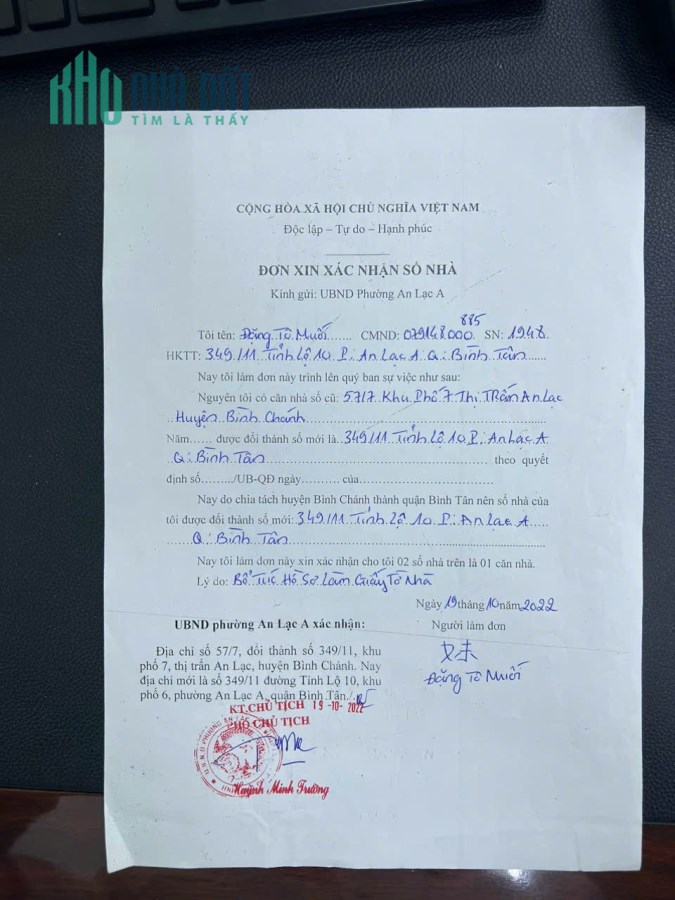 KHO NHÀ ĐẤT
TÌM LÀ THẤY
CỘNG HÒA XÃ HỘI CHỦ NGHĨA VIỆT NAM
Độc lập – Tự do – Hạnh phúc
ĐƠN XIN XÁC NHẬN SỐ NHÀ
Kính gửi: UBND Phường An Lạc A
885
Tôi tên: Đặng Tô Muối....... CMND: 079148.000 SN: 1948.
HKTT: 349/11 Tỉnh Lộ 10. P. An Lạc A. Q: Bình Tân......
Nay tôi làm đơn này trình lên quý ban sự việc như sau:
Nguyên tôi có căn nhà số cũ: 57/7 Khu Phố 7 Thị Trấn An Lạc
Huyện Bình Chánh
Năm...... được đổi thành số mới là 349/11 Tỉnh Lộ 10. P. An Lạc A
Q: Bình Tân ............ theo quyết
định số........./UB-QĐ ngày............ của............
Nay do chia tách huyện Bình Chánh thành quận Bình Tân nên số nhà của
tôi được đổi thành số mới: 349/11 Tỉnh Lộ 10. P. An Lạc A.....
Q: Bình Tân
Nay tôi làm đơn này xin xác nhận cho tôi 02 số nhà trên là 01 căn nhà.
Lý do: Bổ Túc Hồ Sơ Làm Giấy Tờ Nhà
Ngày 19 tháng 10 năm 2022
UBND phường An Lạc A xác nhận:
Người làm đơn
Địa chỉ số 57/7, đổi thành số 349/11, khu
phố 7, thị trấn An Lạc, huyện Bình Chánh. Nay
địa chỉ mới là số 349/11 đường Tỉnh Lộ 10, khu
phố 6, phường An Lạc A, quận Bình Tân./.
Đặng Tô Muối
KT.CHỦ TỊCH 19 -10- 2022
PHÓ CHỦ TỊCH
Huỳnh Minh Trường